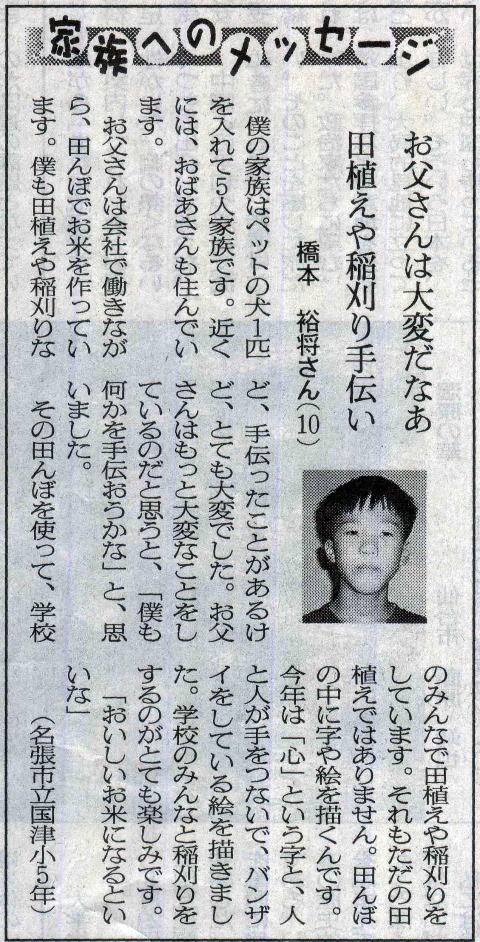 家族へのメッセージ
お父さんは大変だなあ
田植えや稲刈り手伝い
橋本　裕将さん(10)
　僕の家族はペットの犬1匹
を入れて5人家族です。近く
には、おばあさんも住んでい
ます。
　お父さんは会社で働きなが
ら、田んぼでお米を作ってい
ます。僕も田植えや稲刈りな
ど、手伝ったことがあるけ
ど、とても大変でした。お父
さんはもっと大変なことをし
ているのだと思うと、「僕も
何かを手伝おうかな」と、思
いました。
　その田んぼを使って、学校
のみんなで田植えや稲刈りを
しています。それもただの田
植えではありません。田んぼ
の中に字や絵を描くんです。
今年は「心」という字と、人
と人が手をつないで、バンザ
イをしている絵を描きまし
た。学校のみんなと稲刈りを
するのがとても楽しみです。
　「おいしいお米になるとい
いな」
（名張市立国津小5年）